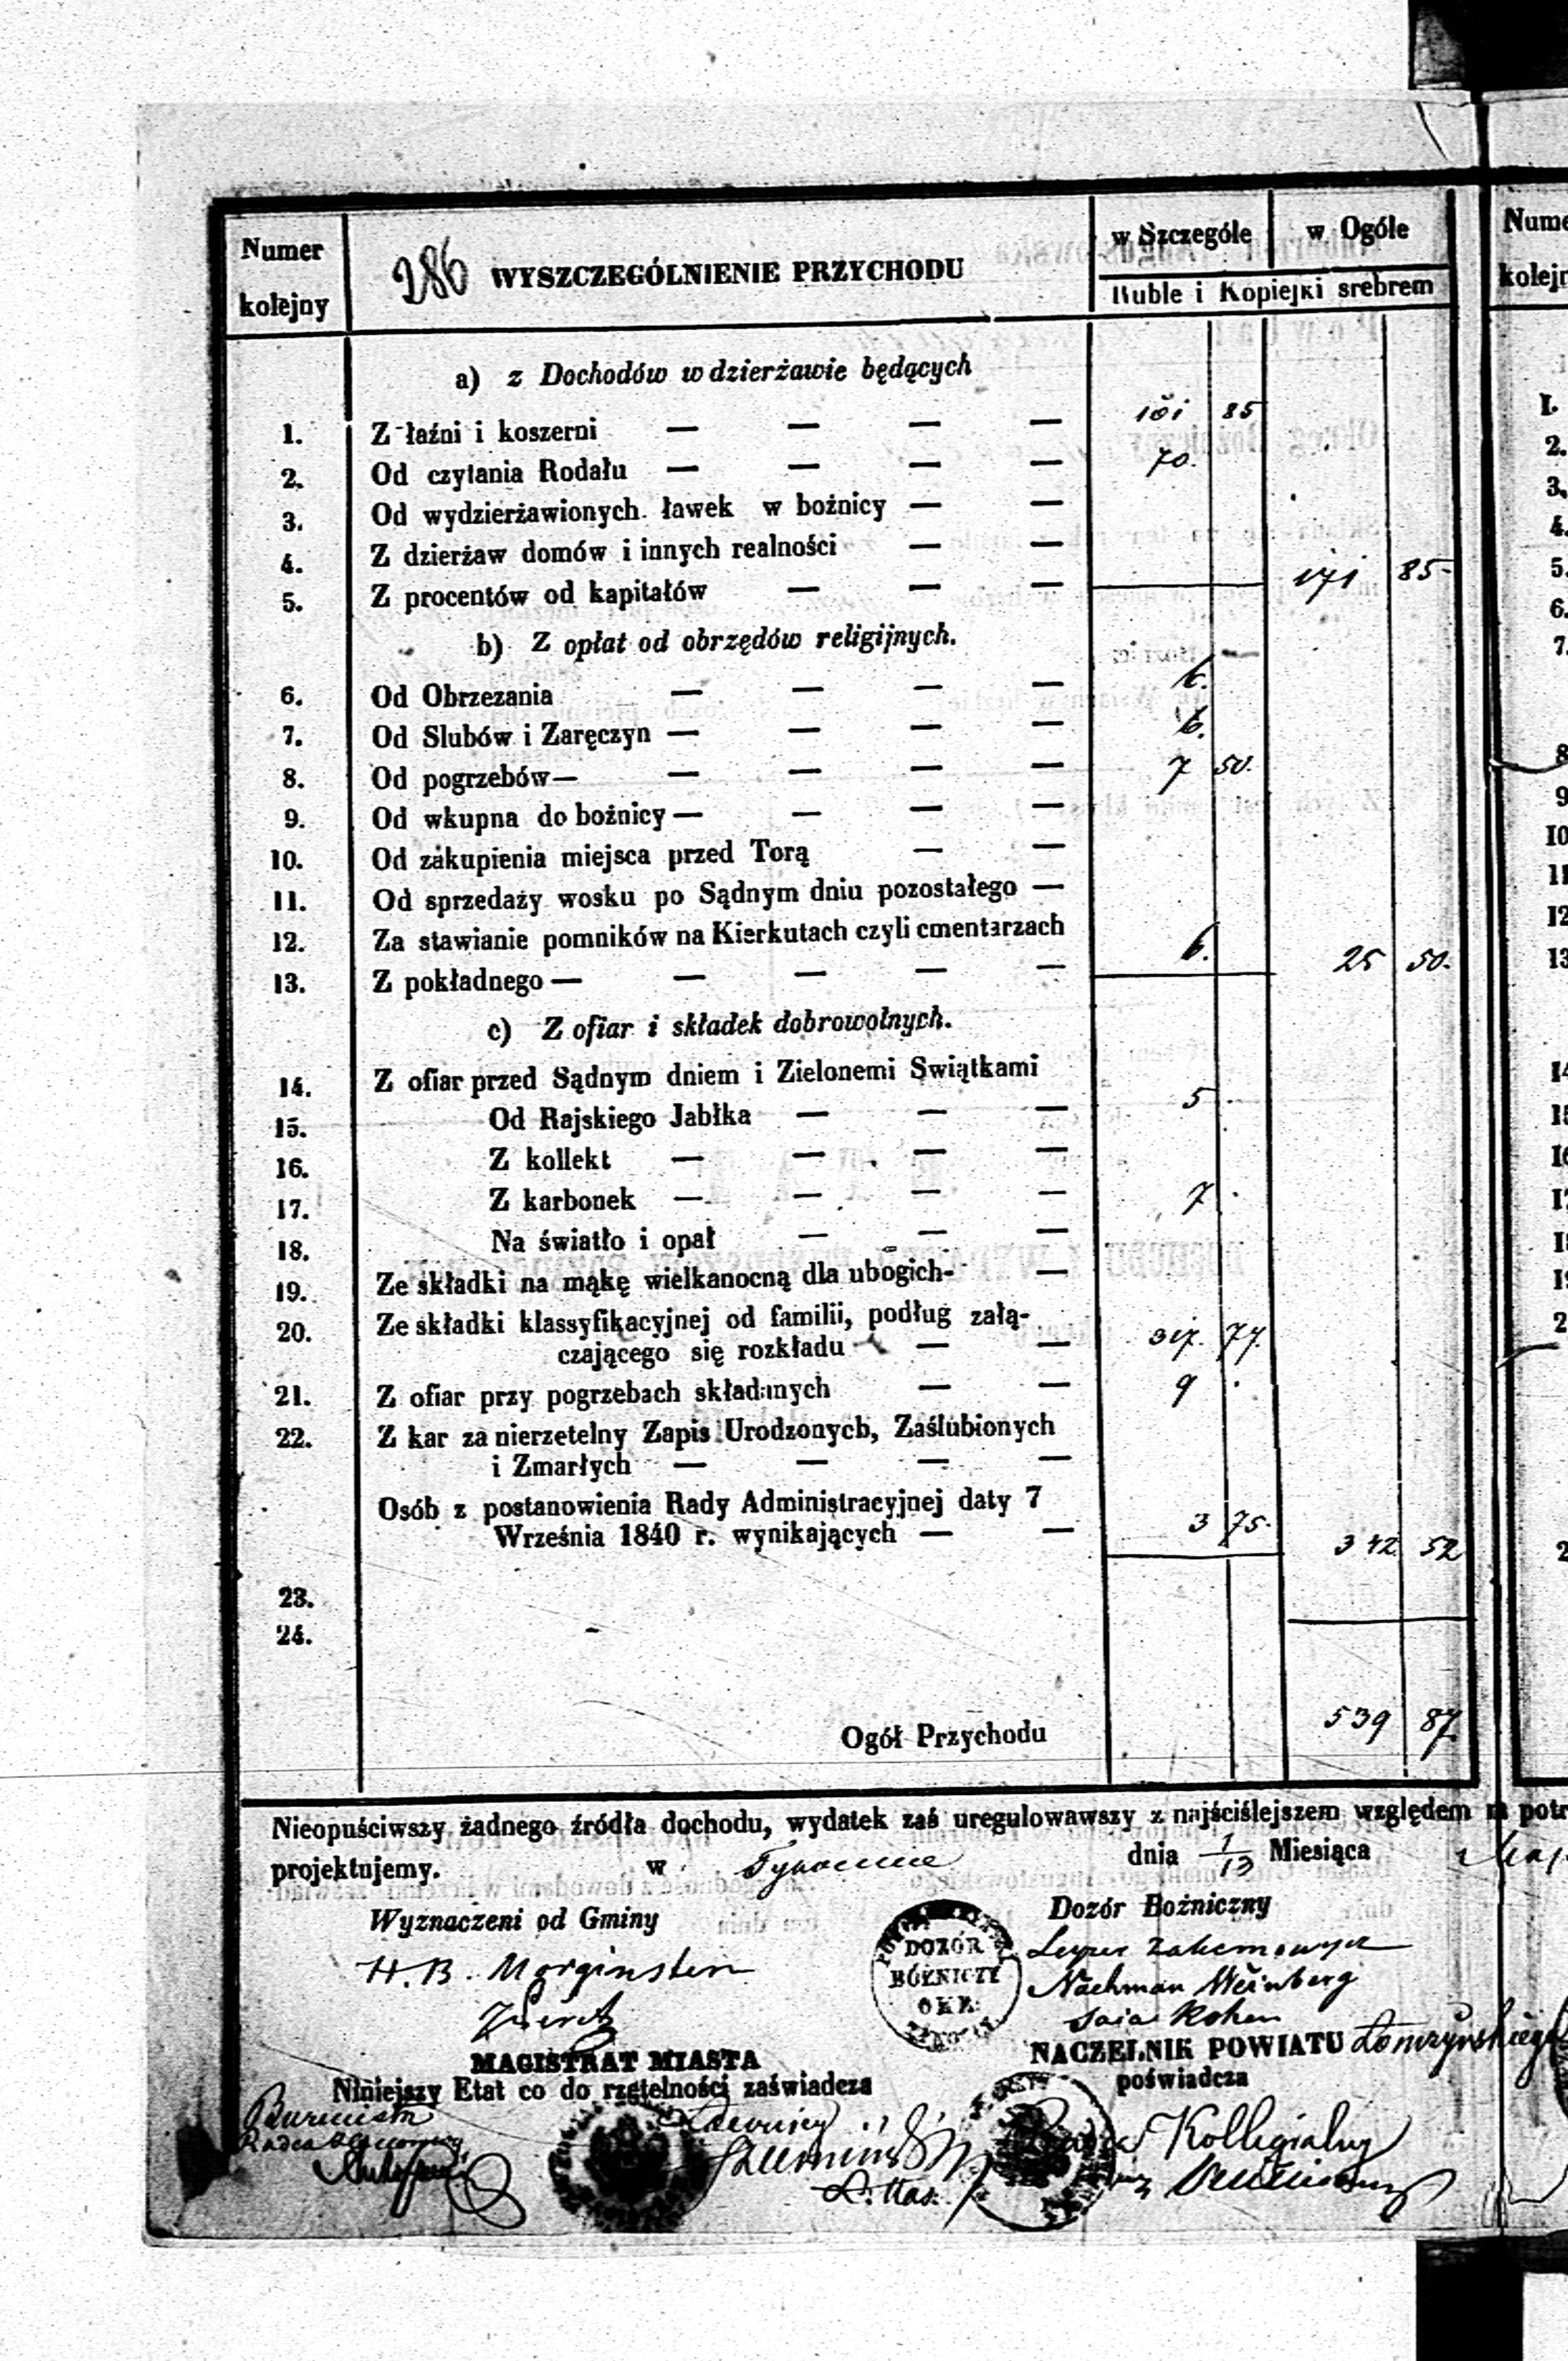 Numer kolejny
286 WYSZCZEGÓLNIENIE PRZYCHODU
w Szczególe w Ogóle
Ruble i Kopiejki srebrem
a) z Dochodów w dzierżawie będących
1. Z łaźni i koszerni — — — — 101 85
2. Od czytania Rodału — — — — 70.
3. Od wydzierżawionych ławek w bożnicy — —
4. Z dzierżaw domów i innych realności — —
5. Z procentów od kapitałów — — — 171 85
b) Z opłat od obrzędów religijnych.
6. Od Obrzezania — — — — 6.
7. Od Slubów i Zaręczyn — — — — 6.
8. Od pogrzebów — — — — — 7 50.
9. Od wkupna do bożnicy — — — —
10. Od zakupienia miejsca przed Torą — —
11. Od sprzedaży wosku po Sądnym dniu pozostałego —
12. Za stawianie pomników na Kierkutach czyli cmentarzach 6.
13. Z pokładnego — — — — — 25 50.
c) Z ofiar i składek dobrowolnych.
14. Z ofiar przed Sądnym dniem i Zielonemi Swiątkami
15. Od Rajskiego Jabłka — — — 5
16. Z kollekt — — — —
17. Z karbonek — — — — 7
18. Na światło i opał — — —
19. Ze składki na mąkę wielkanocną dla ubogich- —
20. Ze składki klassyfikacyjnej od familii, podług załą-
czającego się rozkładu — — 317. 77.
21. Z ofiar przy pogrzebach składanych — — 9
22. Z kar za nierzetelny Zapis Urodzonych, Zaślubionych
i Zmarłych — — — —
Osób z postanowienia Rady Administracyjnej daty 7
Września 1840 r. wynikających — — 3 75. 342 52
23.
24.
Ogół Przychodu 539 87
Nieopuściwszy żadnego źródła dochodu, wydatek zaś uregulowawszy z najściślejszem względem
projektujemy. w Tykocinie dnia 1/13 Miesiąca
Wyznaczeni od Gminy
Dozór Bożniczny
H. B. Morginstern
DOZÓR
BÓŻNICZY
OKR.
Nachman Weinberg
Saia Kohen
MAGISTRAT MIASTA
NACZELNIK POWIATU Łomżyńskiego
Niniejszy Etat co do rzetelności zaświadcza
poświadcza
Burmistrz
Kollegialny